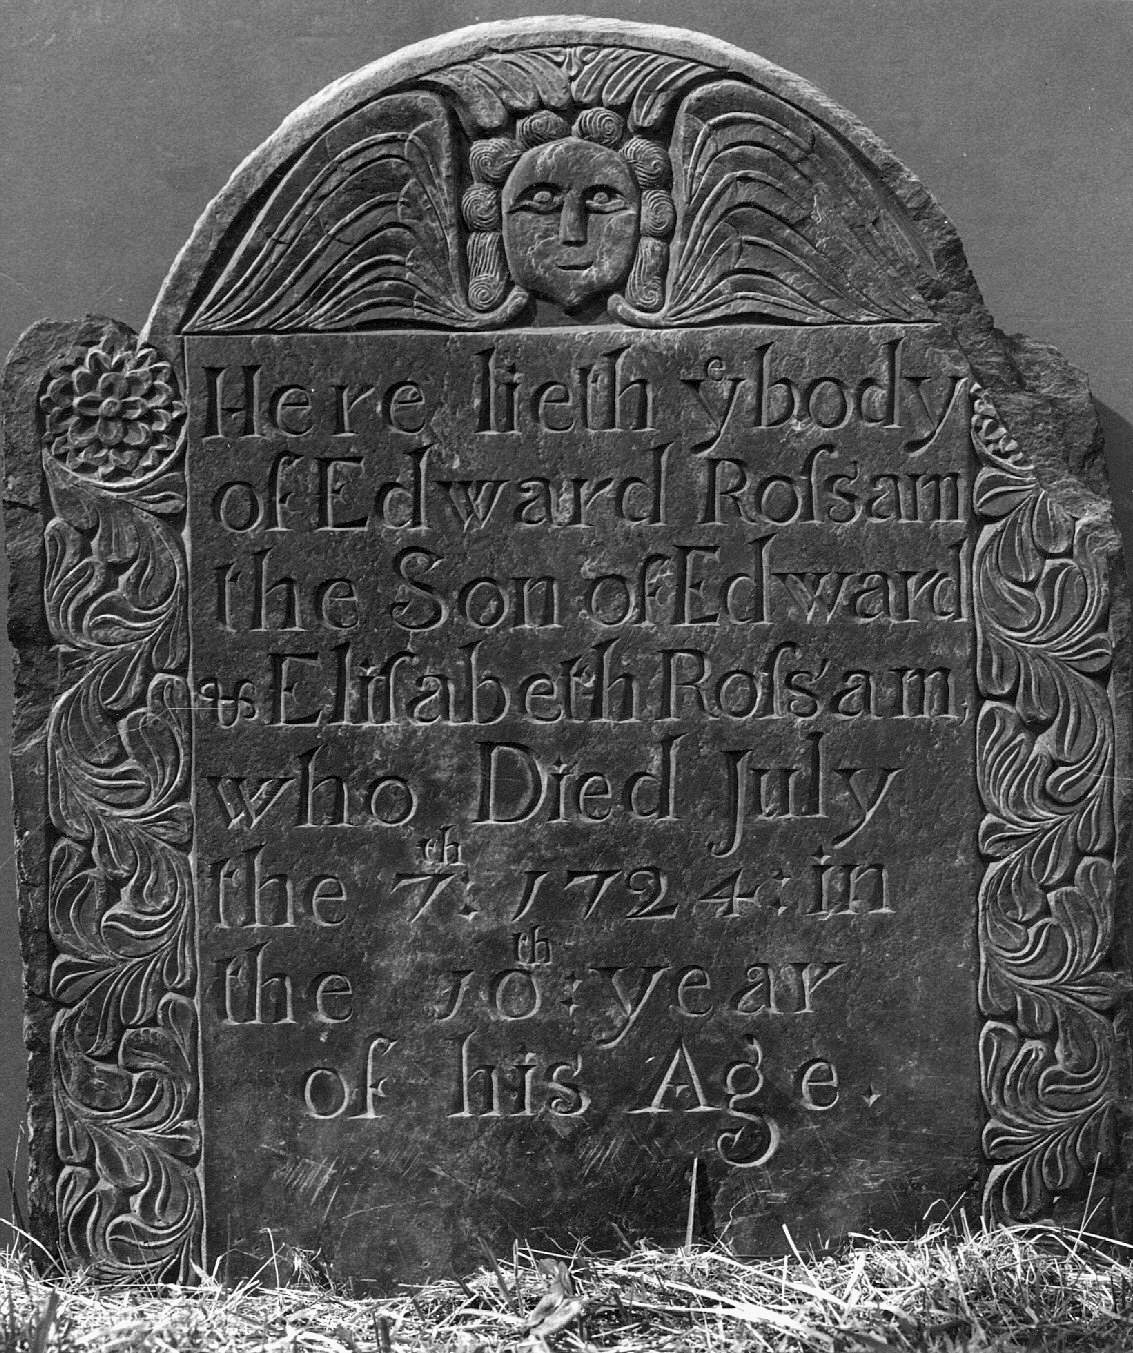 Here lieth yᵉ body
of Edward Roſsam
the Son of Edward
& Eliſabeth Roſsam
who Died July
the 7ᵗʰ: 1724: in
the 10ᵗʰ: year
of his Age.